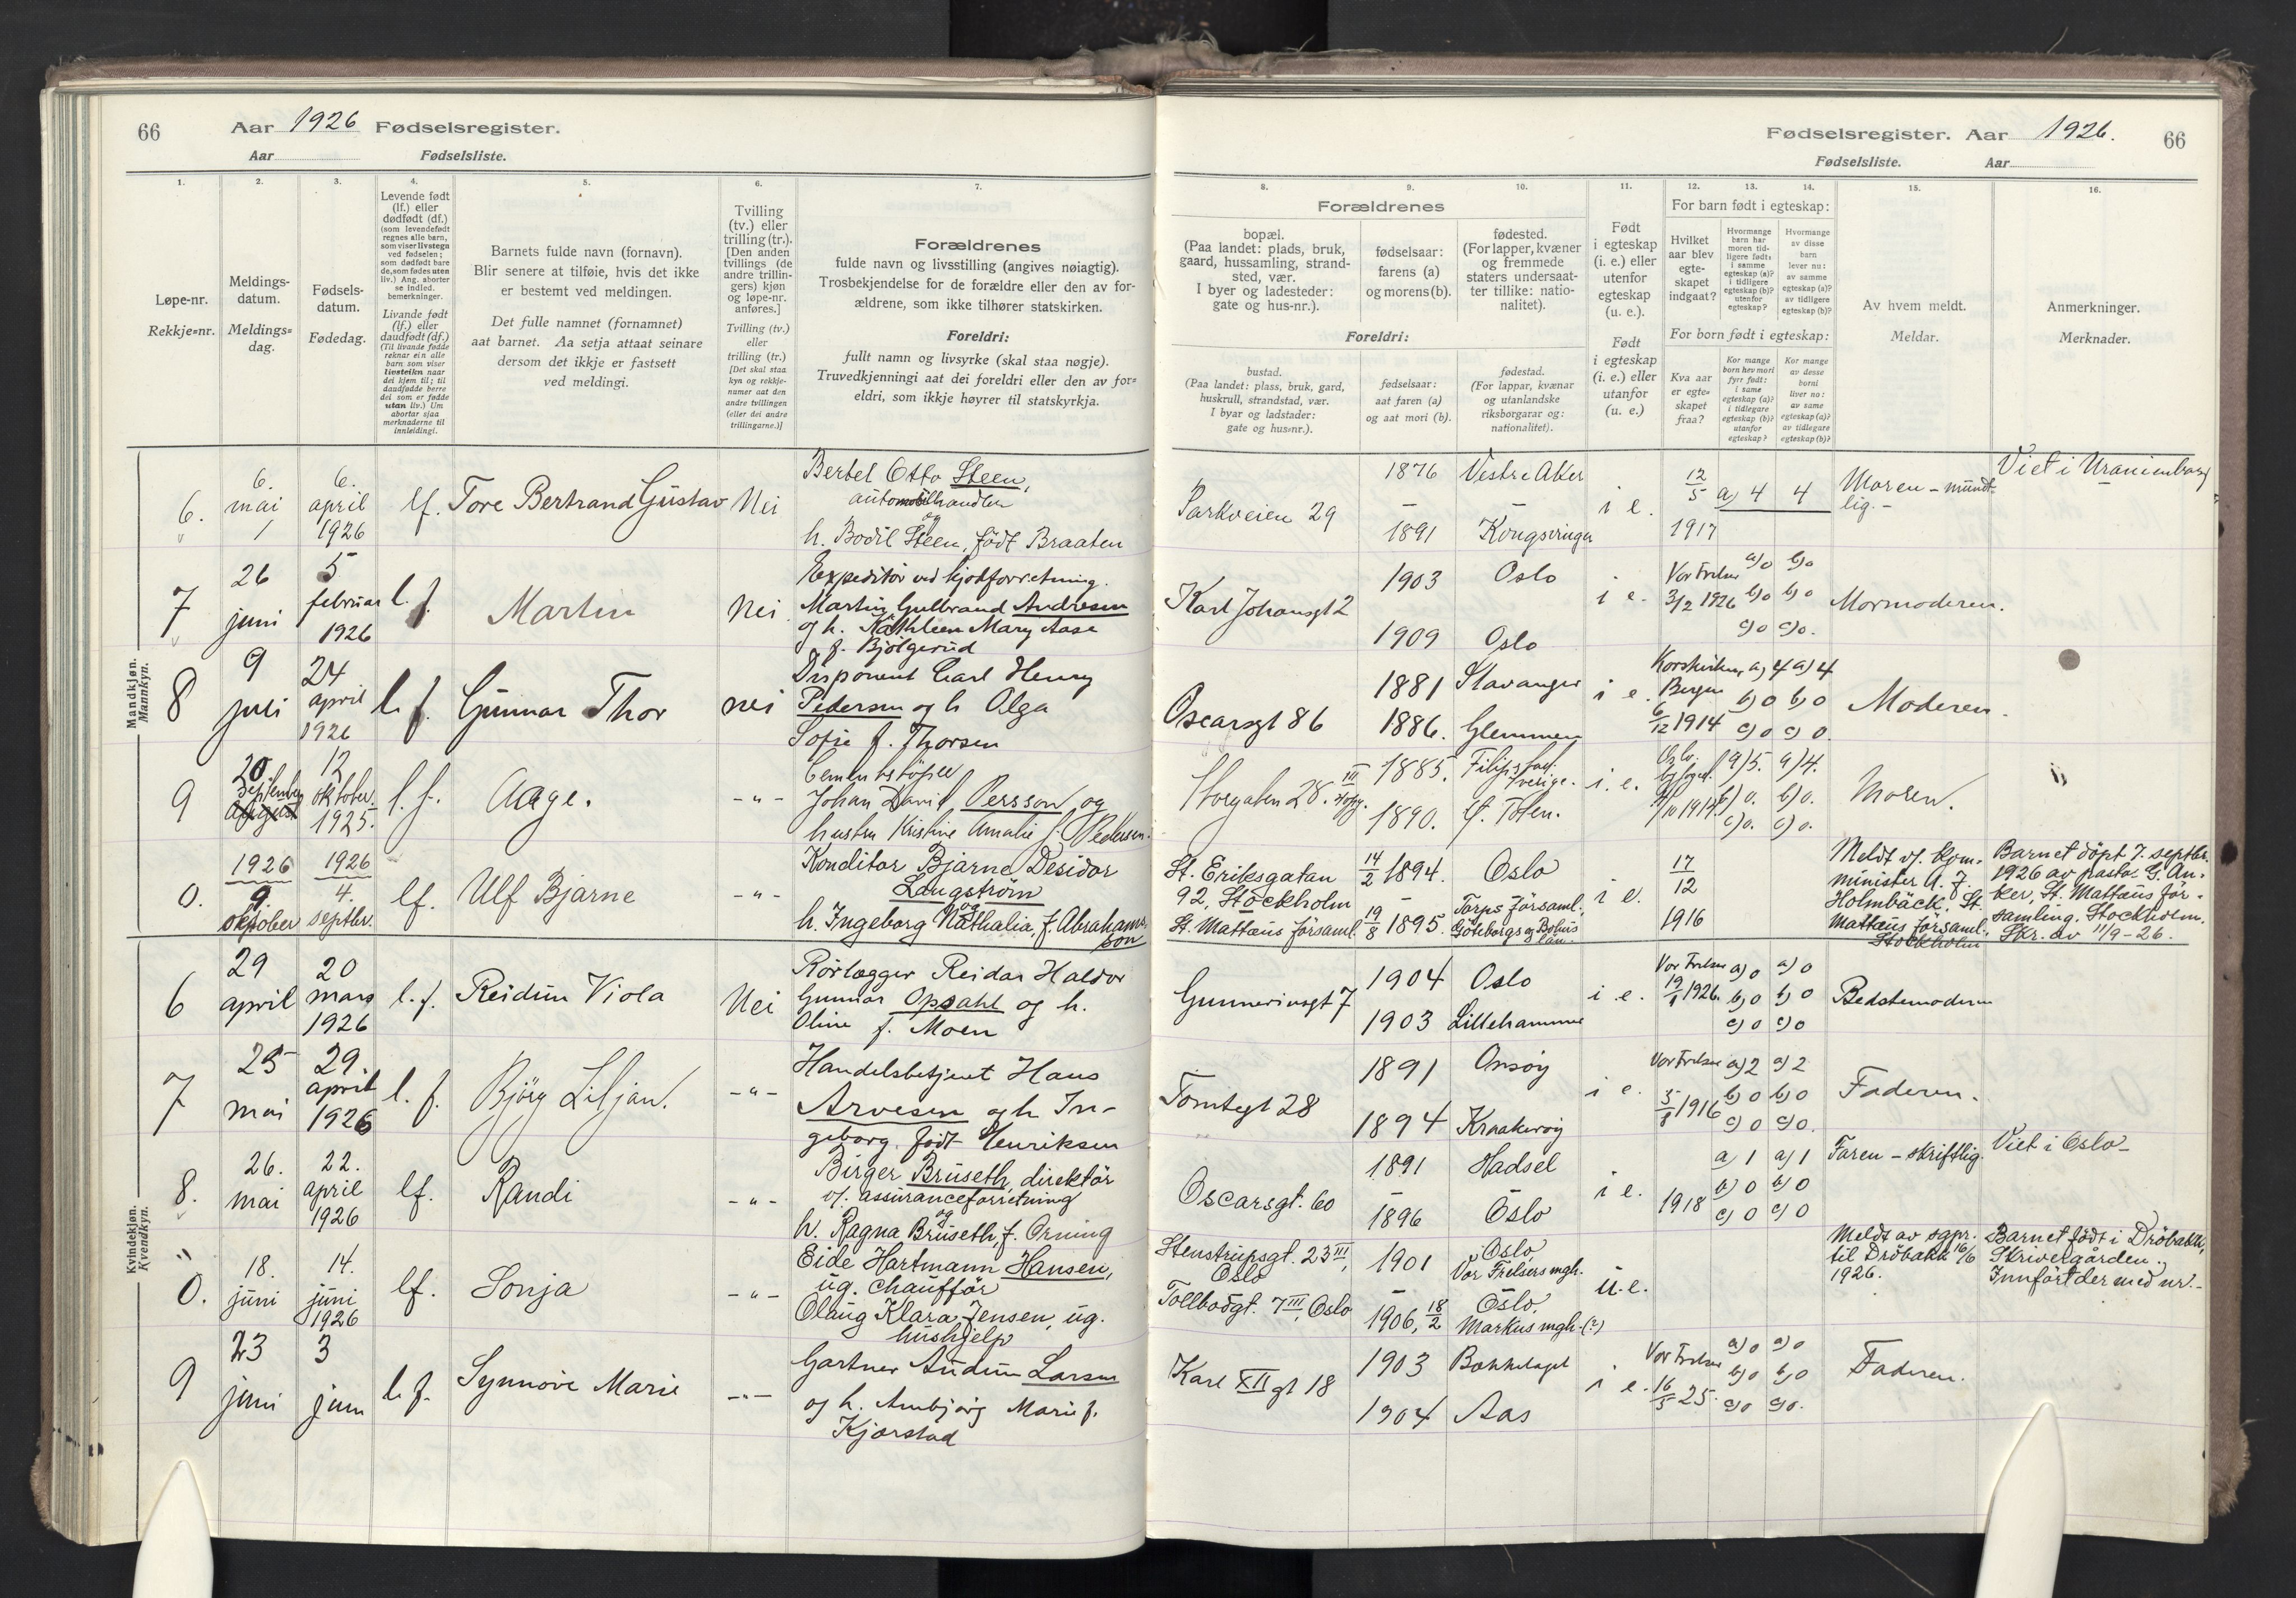 66
Aar 1926 Fødselsregister.
Aar Fødselsliste.
1.
2.
3.
4.
5.
6.
7.
Løpe-nr.
Rekkje=nr.
Meldings-
datum.
Meldings=
dag.
Fødsels-
datum.
Fødedag.
Levende født
(lf.) eller
dødfødt (df.)
(som levendefødt
regnes alle barn,
som viser livstegn
ved fødselen;
som dødfødt bare
de, som fødes uten
liv.) Ang. aborter
se indled.
bemerkninger.
Livande født
(lf.) eller
daudfødt (df.)
(Til livande fødde
reknar ein alle
barn som viser
livsteikn naar
dei kjem til; til
daadfødde berre
dei som er fødde
utan liv.) Um
abortar sjaa
merknaderne til
innleidingi.
Barnets fulde navn (fornavn).
Blir senere at tilføie, hvis det ikke
er bestemt ved meldingen.
Det fulle namnet (fornamnet)
aat barnet. Aa setja attaat seinare
dersom det ikkje er fastsett
ved meldingi.
Tvilling
(tv.) eller
trilling (tr.).
[Den anden
tvillings (de
andre trillin-
gers) kjøn
og løpe-nr.
anføres.]
Tvilling (tv.)
eller
trilling (tr.)
[Det skal staa
kyn og rekkje-
numer aat den
andre tvillingen
(eller dei andre
trillingarne.)]
Forældrenes
fulde navn og livsstilling (angives nøiagtig).
Trosbekjendelse for de forældre eller den av for-
ældrene, som ikke tilhører statskirken.
Foreldri:
fullt namn og livsyrke (skal staa nøgje).
Truvedkjenningi aat dei foreldri eller den av for=
eldri, som ikkje høyrer til statskyrkja.
Mandkjøn.
Mannkyn.
6.
6.
mai
6.
april
1926
lf.
Tore Bertrand Gustav
Nei
Bertel Otto Steen,
automobilhandler
og
h. Bodil Steen, født Braaten
7
26
juni
5
februar
1926
l. f.
Martin
Nei
Expeditør ved kjøtforretning.
Martin Gulbrand Andresen
og h. Kathleen Mary Aase
f. Bjølgerud
8
9
juli
24
april
1926
l. f.
Gunnar Thor
nei
Disponent Carl Henry
Pedersen og h Olga
Sofie f. Thorsen
9
20
september
august
12
oktober.
1925.
l. f.
Aage.
-"-
Cementstøper
Johan David Persson og
hustru Kristine Amalie f. Pedersen.
0.
1926
9.
oktober
1926
4.
septbr.
lf.
Ulf Bjarne
-"-
Konditor Bjarne Desidor
Langstrøm
og
h. Ingeborg Nathalia, f. Abrahams-
son
Kvindekjøn.
Kvendekyn.
6
29
april
20
mars
1926
l. f.
Reidun Viola
Nei
Rørlægger Reidar Haldor
Gunnar Opsahl og h.
Oline f. Moen
7
25
mai
29.
april
1926
l. f.
Bjørg Liljan.
-"-
Handelsbetjent Hans
Arvesen og h In-
geborg, født Henriksen
8.
26.
mai
22.
april
1926
lf.
Randi
-"-
Birger Bruseth, direktør
v. assuranceforretning
og
h. Ragna Bruseth, f. Orning
0.
18.
juni
14.
juni
1926
lf.
Sonja
-"-
Eide Hartmann Hansen,
ug. chauffør
Olaug Klara Jensen, ug.
hushjelp
9
23
juni
3
juni
l. f.
Synnøve Marie
-"-
Gartner Audun Larsen
og h. Ambjørg Marie f.
Kjørstad
Fødselsregister. Aar 1926.
66
Fødselsliste. Aar
8.
9.
10.
11.
12.
13.
14.
15.
16.
Forældrenes
bopæl.
(Paa landet: plads, bruk,
gaard, hussamling, strand-
sted, vær.
I byer og ladesteder:
gate og hus-nr.).
fødselsaar:
farens (a)
og morens (b).
fødested.
(For lapper, kvæner
og fremmede
staters undersaat-
ter tillike: natio-
nalitet).
Foreldri:
bustad.
(Paa landet: plass, bruk, gard,
huskrull, strandstad, vær.
I byar og ladstader:
gate og hus=nr.).
fødselsaar:
aat faren (a)
og aat mori (b).
fødestad.
(For lappar, kvænar
og utanlandske
riksborgarar og:
nationalitet).
Født
i egteskap
(i. e.) eller
utenfor
egteskap
(u. e.).
Født
i egteskap
(i. e.) eller
utanfor
egteskap
(u. e.)
For barn født i egteskap:
Hvilket
aar blev
egte-
skapet
indgaat?
Hvormange
barn har
moren tid-
ligere født:
i samme
egteskap (a)?
i tidligere
egteskap (b)?
utenfor
egteskap?
Hvormange
av disse
barn
lever nu:
av samme
egteskap (a)?
av tidligere
egteskap (b)?
For born født i egteskap:
Kva aar
er egte=
skapet
fraa?
Kor mange
born hev mori
fyrr født:
i same
egteskap (a)?
i tidlegare
egteskap (b)?
utanfor
egteskap?
Kor mange
av desse
borni
liver no:
av same
egteskap (a)?
av tidlegare
egteskap (b)?
Av hvem meldt.
Meldar.
Anmerkninger.
Merknader.
Parkveien 29
1876
-
1891
Vestre Aker
-
Kongsvinger
i e.
12/5
1917
a) 4
4
Moren - mundt-
lig.-
Viet i Uranienborg
Karl Johansgt 2
1903
1909
Oslo
Oslo
i e.
Vor Frelser
3/2 1926
a) 0 a) 0
b) 0 b) 0
c) 0 c) 0.
Mormoderen.
Oscarsgt 86
1881
1886.
Stavanger
Glemmen
i e.
Korskirken,
Bergen
6/12 1914
a) 4 a) 4
b) 0 b) 0
c) 0 c) 0.
Moderen.
Storgaten 28. III
1885.
1890.
Filipstad.
Sverige.
Ø. Toten.
i. e.
Oslo.
byfoged.
1914.
a) 5. a) 4.
b) 0. b) 0.
c) 0. c) 0.
Moren.
St. Eriksgatan
92, Stockholm
St. Mattæus førsaml.
14/2 1894.
-
19/8 1895.
Oslo
-
Torps församl.,
Göteborgs og Bohus
län.
i e.
17
12
1916
Meldt v. kom-
minister A. J.
Holmbäck, St.
Mattæus församl.,
Stockholm
Barnet döpt 7. septbr.
1926 av pastor G. An-
ker, St. Mattæus för-
samling, Stockholm.
Skr. av 11/9-26.
Gunnerusgt 7
1904
1903
Oslo
Lillehammer
i e.
Vor Frelser
19/1 1926.
a) 0 a) 0
b) 0 b) 0
c) 0 c) 0
Bedstemoderen
Tomtegt 28
1891
1894
Onsøy
Kraakerøy
i e.
Vor Frelser
5/8 1916
a) 2 a) 2
b) 0 b) 0
c) 0 c) 0.
Faderen.
Oscarsgt. 60
1891
-
1896
Hadsel
-
Oslo
i e.
1918
a) 1 a) 1
b) 0 b) 0
c) 0 c) 0
Faren - skriftlig.
Viet i Oslo-
Stenstrupsgt. 23 III,
Oslo
Tollbodgt. 7 III, Oslo
1901
-
1906, 18/2
Oslo,
Vor Frelsers mgh.
Oslo,
Markus mgh. (?)
u. e.
Meldt av sgpr.
til Drøbakk 16/6
1926.
Barnet født i Drøbakk,
Skrivergården.
Innført der med nr.-
Karl XII gt 18
1903
1904
Bækkelaget
Aas
i e.
Vor Frelser
16/5 25.
a) 0 a) 0
b) 0 b) 0
c) 0 c) 0.
Faderen.